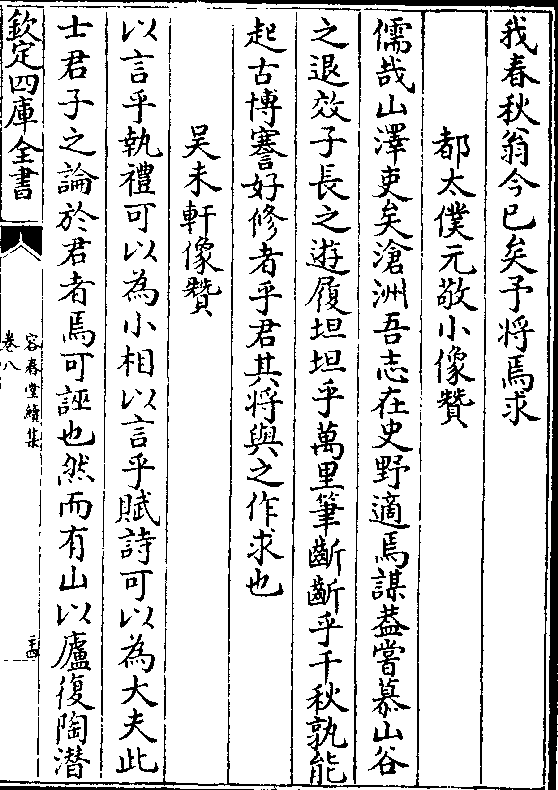 我春秋翁今已矣予将焉求
都太僕元敬小像贊
儒哉山澤吏矣滄洲吾志在史野適焉謀葢嘗慕山谷
之退效子長之遊履坦坦乎萬里筆齗齗乎千秋孰能
起古博謇好修者乎君其將與之作求也
吴未軒像贊
以言乎執禮可以為小相以言乎賦詩可以為大夫此
士君子之論於君者焉可誣也然而有山以廬復陶潜
欽定四庫全書
容春堂續集
卷八